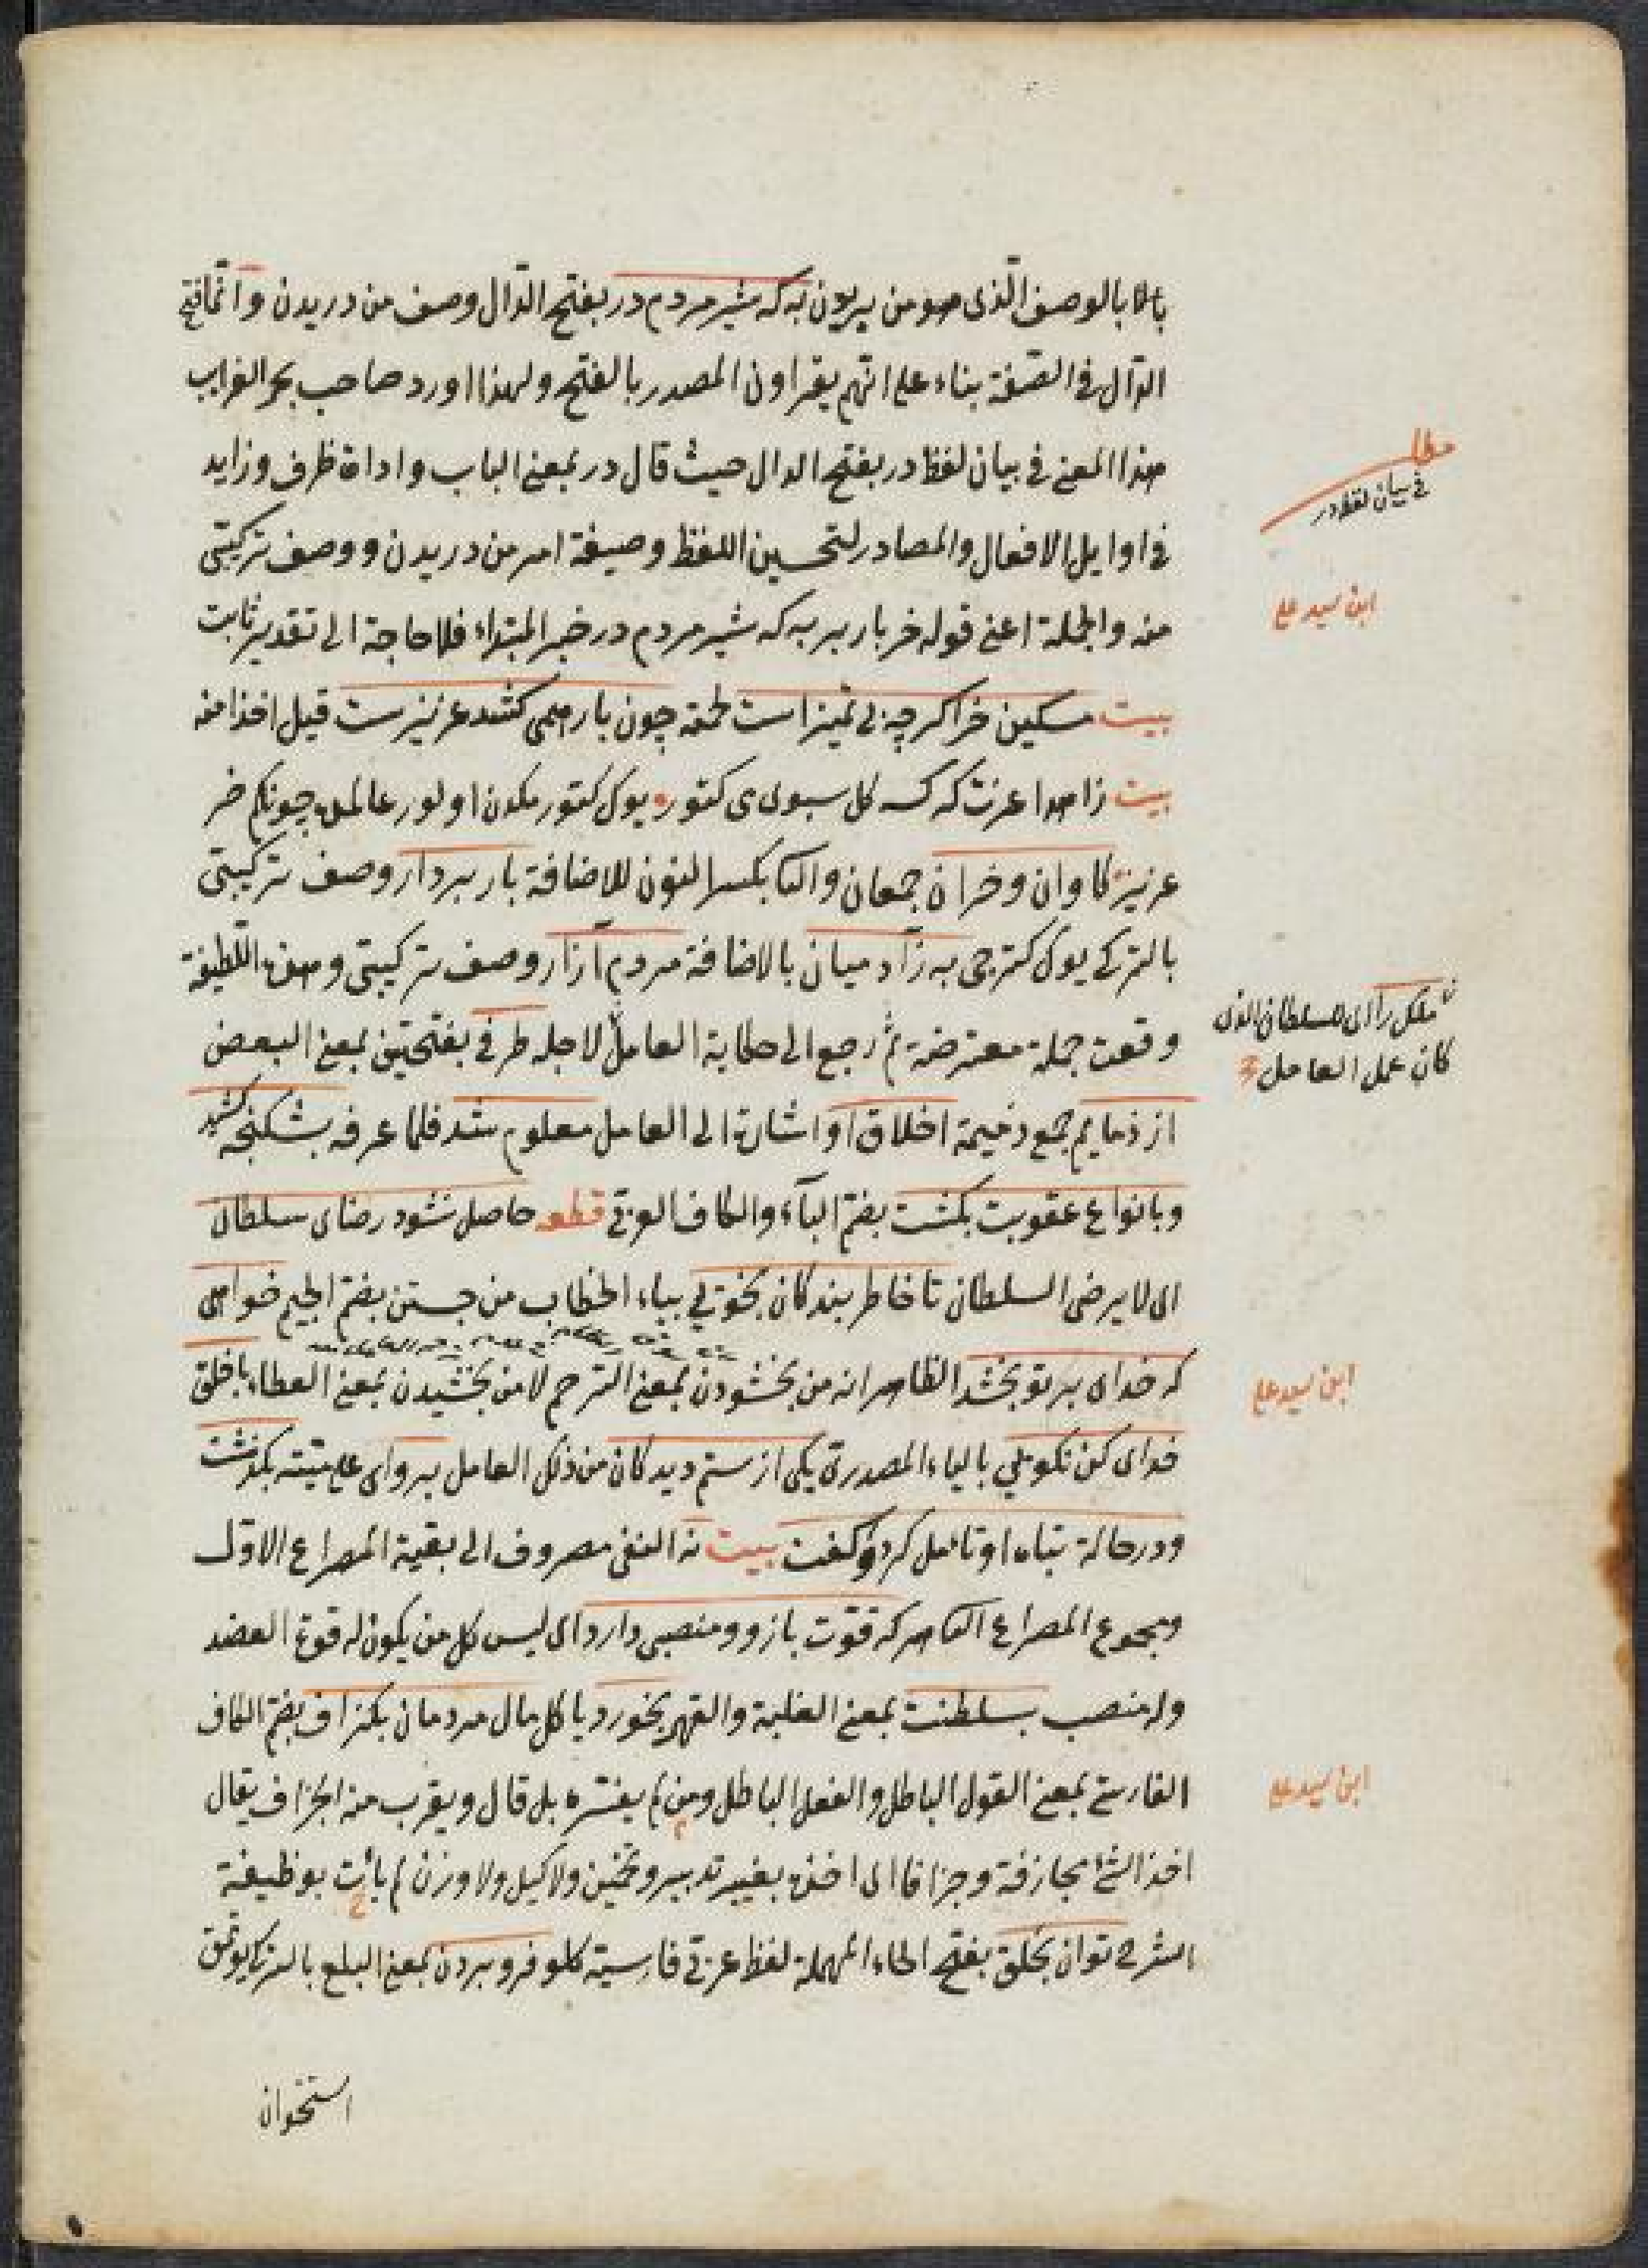 بالا بالوصف الّذى هو من بريدن به كه شير مردم در بفتح الدّال وصف من دريدن وانّما فتح
الدّال فى الصّفة بناء على انّهم يقراون المصدر بالفتح ولهذا اورد صاحب بحر الغرايب
هذا المعنى فى بيان لفظ در بفتح الدال حيث قال در بمعنى الباب واداة ظرف وزايد
فى اوايل الافعال والمصادر لتحسين اللفظ وصيغة امر من دريدن ووصف تركيبى
منه والجملة اعنى قوله خر باربر به كه شير مردم در خبر المبتداء فلا حاجة الى تقدير ثابت
بيت مسكين خر اكرچه بى تميز است لكنه چون بار همى كشد عزيزست قيل اخذا منه
بيت زاهدا عزت كه كسه كل سبوى كتور يوك كتورمكدن اولور عالمده چونكم خر
عزيز كاوان وخران جمعان والكل بكسر النون للاضافة بار بردار وصف تركيبى
بالتركى يوك كترجى به ز آدميان بالاضافة مردم آزار وصف تركيبى وهذه اللّطيفة
وقعت جملة معترضة ثم رجع الى حكاية العامل لاجله طرفى بفتحتين بمعنى البعض
از ذمايم جمع ذميمة اخلاق او اشارة الى العامل معلوم شد فلما عرفه بشكنجه كشيد
وبانواع عقوبت بكشت بضمّ البآء والكاف العربى قطعه حاصل نشود رضاى سلطان
اى لا يرضى السلطان تا خاطر بندكان بجويى بياء الخطاب من جستن بضم الجيم خواهى
كه خداى بر تو بخشد الظاهر انه من بخشودن بمعنى الترحم لا من بخشيدن بمعنى العطاء با خلق
خداى كن نكويى بالياء المصدرى يكى از ستم ديدكان من ذلك العامل بر واى على ميّته بكذشت
ودر حالة تباه او تامل كرد وكفت بيت نه النفى مصروف الى بقية المصراع الاوّل
ومجموع المصراع هر كه قوّت بازو ومنصبى دارد اى ليس كل من يكون له قوة العضد
وله منصب بسلطنت بمعنى الغلبة والقهر بخورد ياكل مال مردمان بكزاف بضم الكاف
الفارسى بمعنى القول الباطل والفعل الباطل ومن لم يفسّره بل قال ويقرب منه الجزاف يقال
اخذ الشئ مجازفة وجزافا اى اخذه بغير تدبير وتخمين ولا كيل ولا وزن لم يأت بوظيفة
الشرح توان بحلق بفتح الحاء المهملة لفظ عربى فارسيته كلو فرو بردن بمعنى البلع بالتركى يوتمق
استخوان
مطلب
فى بيان لفظ در
ابن سيد على
ملك را اى للسلطان الذى
كان عمل العامل
ابن سيد على
ابن سيد على